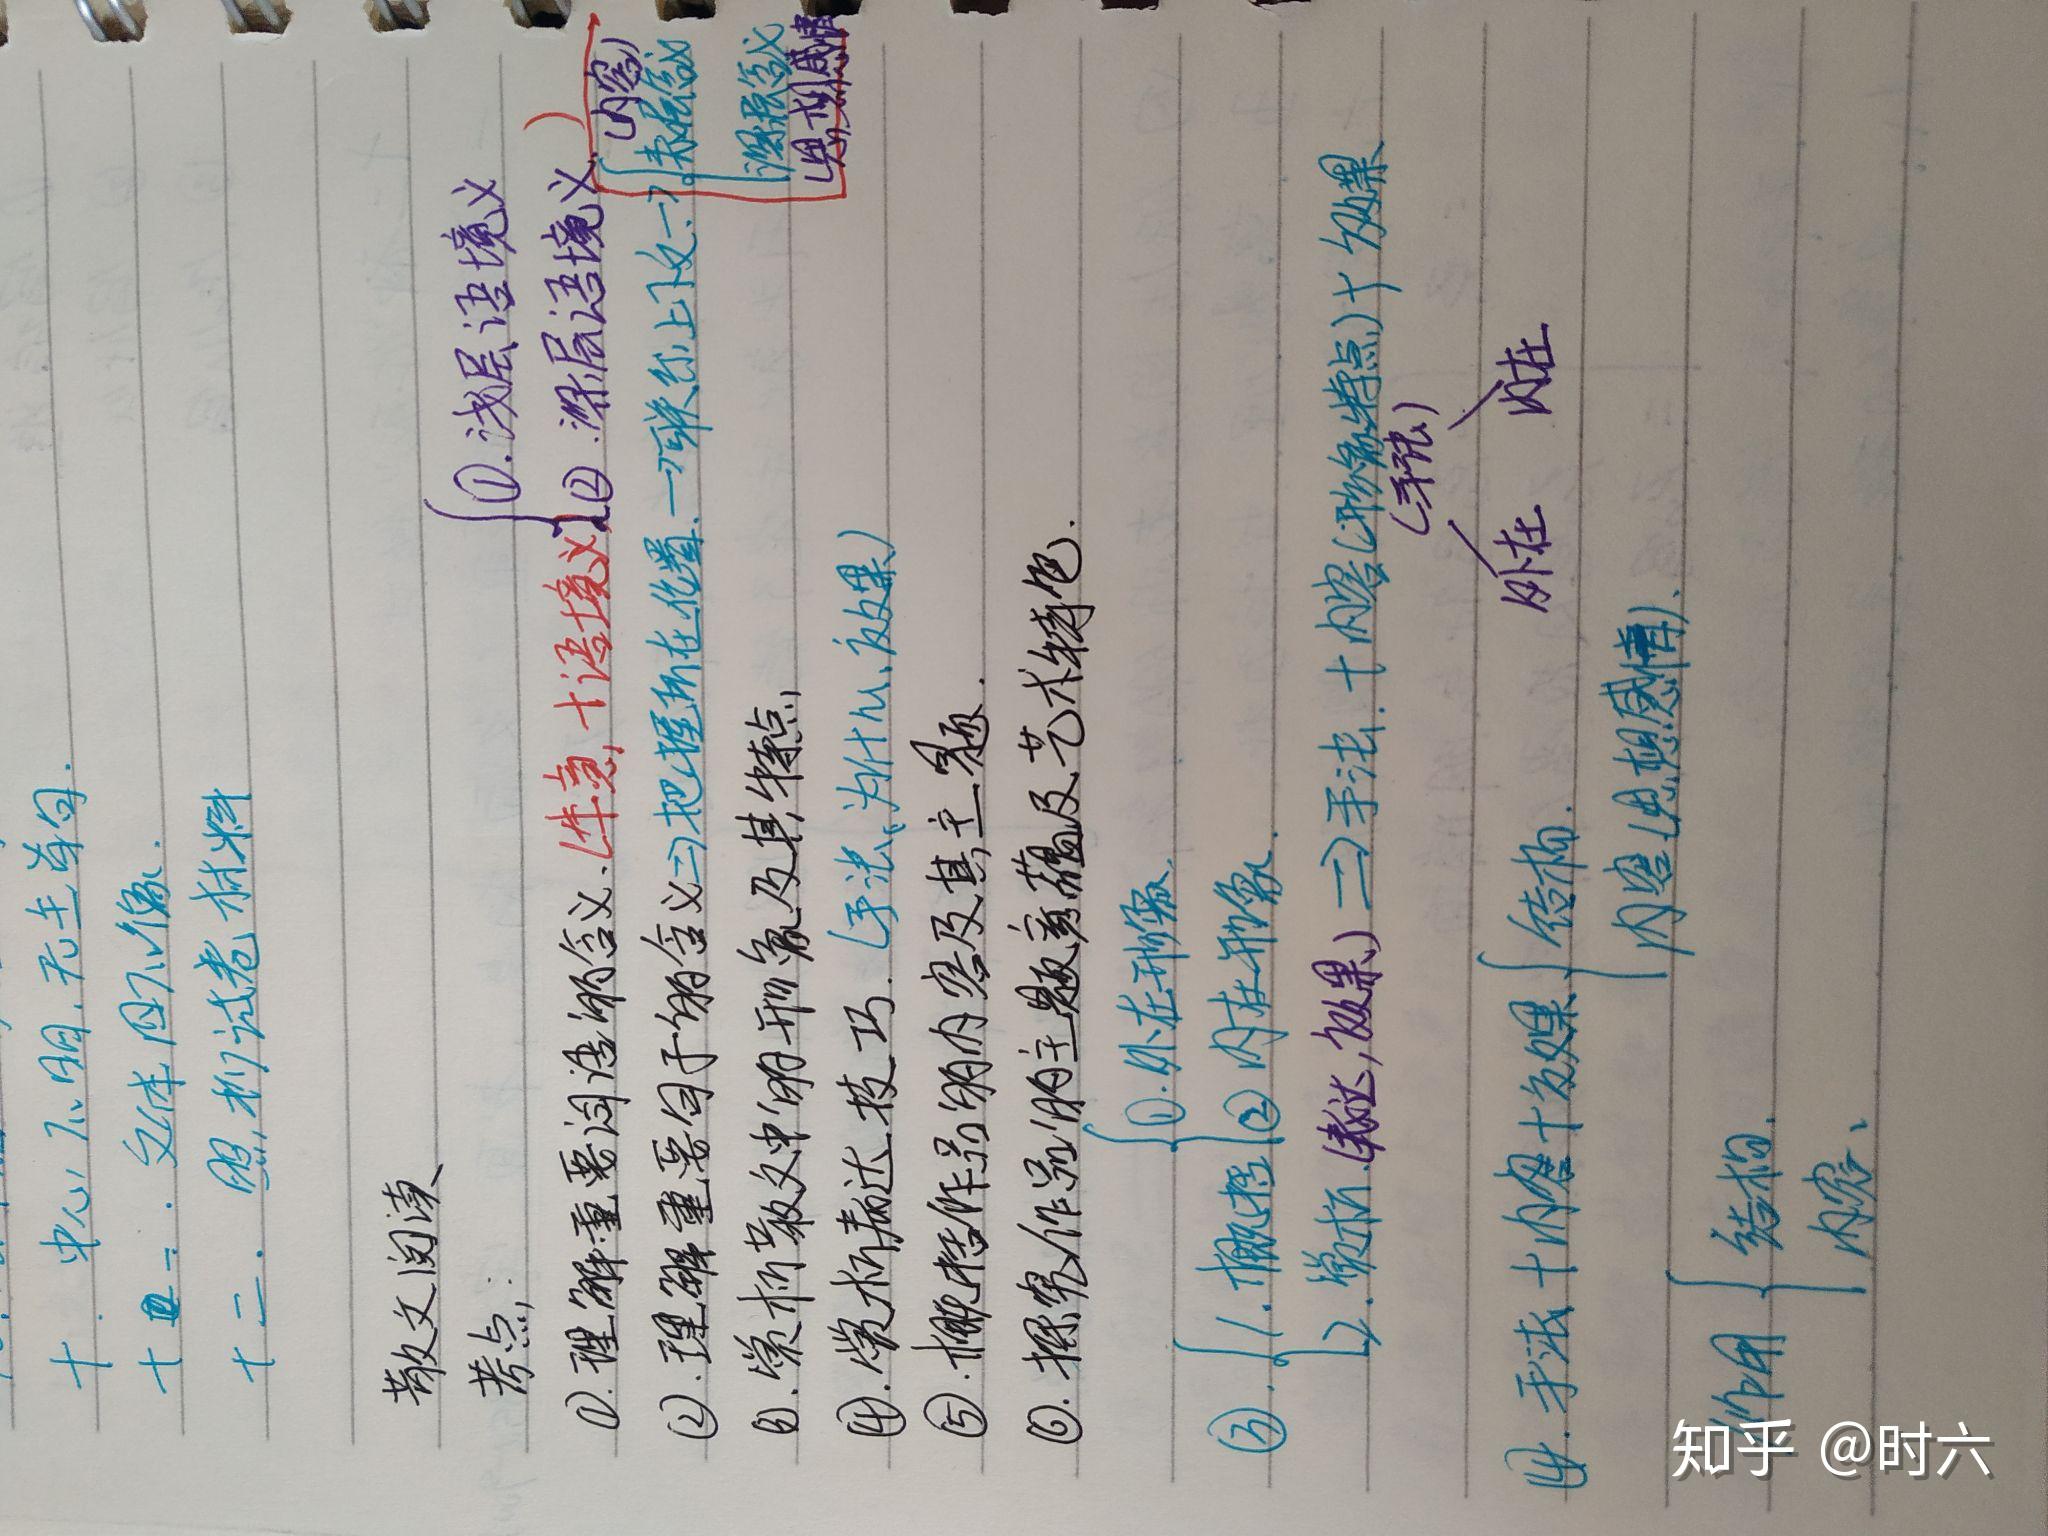 十. 中心不明,无主单句.
十一. 文体四不像.
十二. 照抄试卷材料
散文阅读
考点:
{①.浅层语境义
②.深层语境义
①.理解重要词语的含义.(本意,+语境义)
(内容)
②.理解重要句子的含义=>把握所在位置.—>联系上下文.—>{表层含义
深层含义
(思想感情
③.赏析散文中的形象及其特点,
④.赏析表达技巧.(手法、为什么、效果)
⑤.概括作品的内容及其主题.
⑥.探究作品的主题意蕴及艺术特色.
③.{1.概括{①.外在形象
②内在形象.
2.赏析.(表达,效果)=>手法.+内容(形象特点)+效果
(手法)
外在 内在
④.手法+内容+效果{结构.
内容(思想感情).
作用{结构.
内容、
知乎 @时六